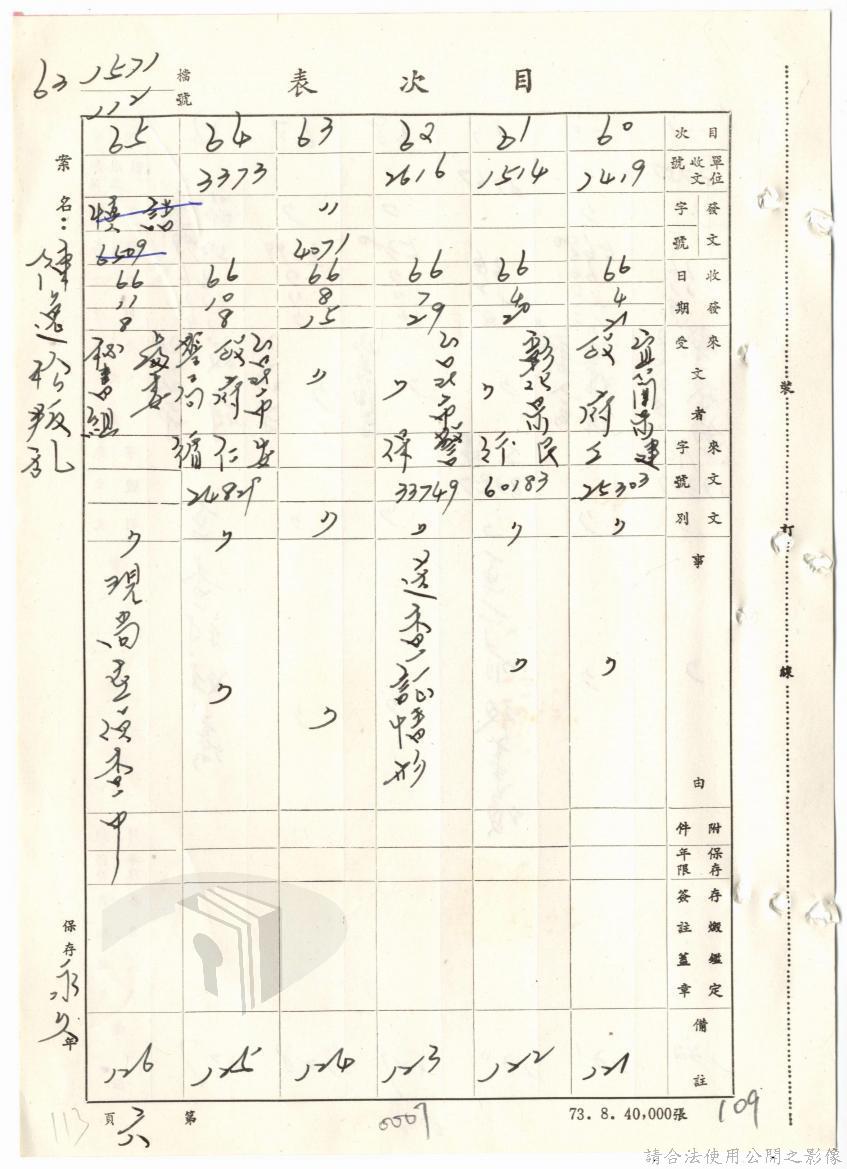 目次表
檔號
63 1571
112
案名：
叛乱
目次 60 61 62 63 64 65
單位收文號 1419 1514 2616 3373
發文字號 〃 4071 6509
收發日期 66 4 21
66 4 20
66 7 29
66 8 15
66 10 8
66 11 8
來文者受文者
宜蘭県政府
彰化県〃
台北市〃
〃
台北市政府警局
秘書組
來文字號
建工 25303
民行 60183
警保 33749
安仁 24829
文別 〃 〃 〃 〃 〃 〃
事由
〃
〃
送查証情形
〃
〃
現尚在偵查中
附件
保存年限
存燬鑑定簽註蓋章
備註 121 122 123 124 125 126
保存永久年
裝訂線
第六頁
113
0007
73. 8. 40,000張
109
請合法使用公開之影像